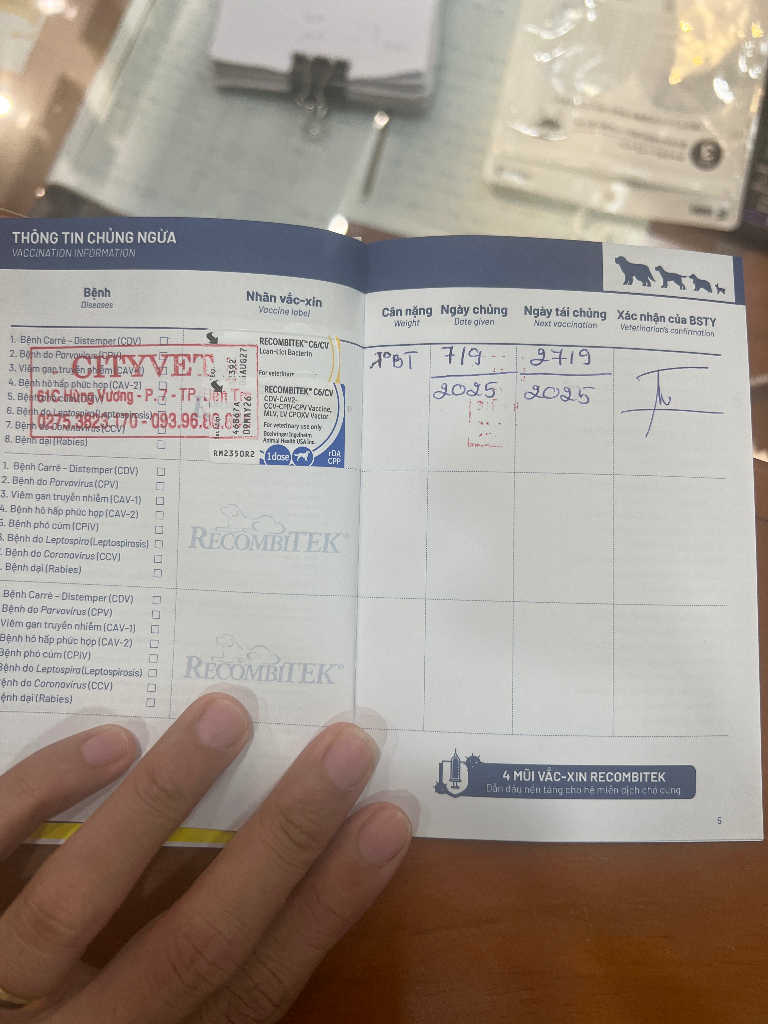 THÔNG TIN CHỦNG NGỪA
VACCINATION INFORMATION
Bệnh
Diseases
Nhãn vắc-xin
Vaccine label
Cân nặng
Weight
Ngày chủng
Date given
Ngày tái chủng
Next vaccination
Xác nhận của BSTY
Veterinarian's confirmation
1. Bệnh Carré - Distemper (CDV)
2. Bệnh do Parvovirus (CPV)
3. Viêm gan truyền nhiễm (CAV-1)
4. Bệnh hô hấp phức hợp (CAV-2)
6. Bệnh do Leptospira (Leptospirosis)
7. Bệnh do Coronavirus (CCV)
8. Bệnh dại (Rabies)
CITYVET
Hùng Vương - P. 7 - TP.
0275.3823
093.96
RECOMBITEK® C6/CV
Lcan-Lict Bacterin
For veterinary
AUG27
RECOMBITEK® C6/CV
CDV-CAV2-
CCV-CPiV-CPV Vaccine,
MLV, LV CPOXV Vector
For veterinary use only
Boehringer Ingelheim
Animal Health USA Inc.
1 dose
rDA
CPP
46867A
09MAY26
RM2350R2
T° BT
7/9
2025
27/9
2025
1. Bệnh Carré - Distemper (CDV)
2. Bệnh do Parvovirus (CPV)
3. Viêm gan truyền nhiễm (CAV-1)
4. Bệnh hô hấp phức hợp (CAV-2)
5. Bệnh phó cúm (CPiV)
. Bệnh do Leptospira (Leptospirosis)
. Bệnh do Coronavirus (CCV)
. Bệnh dại (Rabies)
RECOMBITEK®
Bệnh Carré - Distemper (CDV)
Bệnh do Parvovirus (CPV)
Viêm gan truyền nhiễm (CAV-1)
Bệnh hô hấp phức hợp (CAV-2)
Bệnh phó cúm (CPiV)
Bệnh do Leptospira (Leptospirosis)
Bệnh do Coronavirus (CCV)
ệnh dại (Rabies)
RECOMBITEK®
4 MŨI VẮC-XIN RECOMBITEK
Dẫn đầu nền tảng cho hệ miễn dịch chó cưng
5